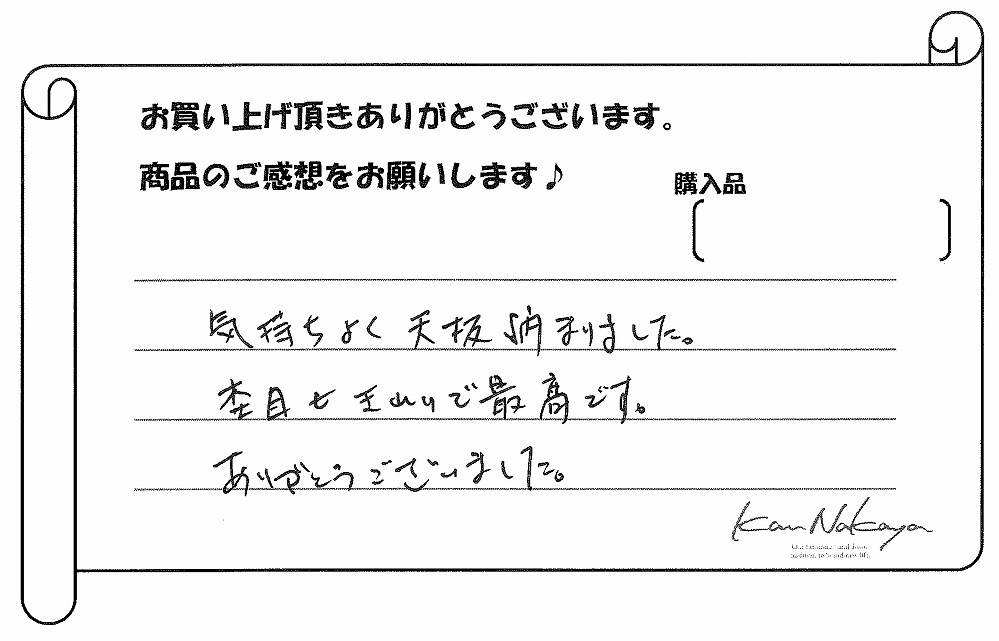 お買い上げ頂きありがとうございます。
商品のご感想をお願いします♪
購入品
気持ちよく天板納まりました。
杢目も玉杢で最高です。
ありがとうございました。
Kan Nakaya